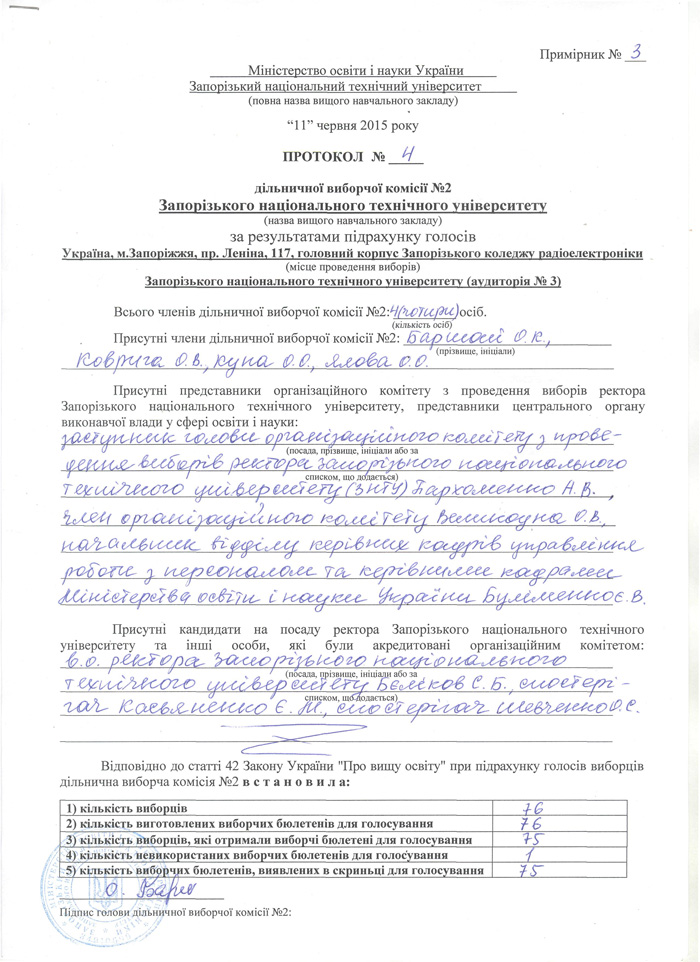 Примірник № 3
Міністерство освіти і науки України
Запорізький національний технічний університет
(повна назва вищого навчального закладу)
“11” червня 2015 року
ПРОТОКОЛ № 4
дільничної виборчої комісії №2
Запорізького національного технічного університету
(назва вищого навчального закладу)
за результатами підрахунку голосів
Україна, м.Запоріжжя, пр. Леніна, 117, головний корпус Запорізького коледжу радіоелектроніки
(місце проведення виборів)
Запорізького національного технічного університету (аудиторія № 3)
Всього членів дільничної виборчої комісії №2: 4(чотири) осіб.
(кількість осіб)
Присутні члени дільничної виборчої комісії №2: О.К.,
(прізвище, ініціали)
Коврига О.В., Купа О.О., Ялова О.О.
Присутні представники організаційного комітету з проведення виборів ректора
Запорізького національного технічного університету, представники центрального органу
виконавчої влади у сфері освіти і науки:
заступник голови організаційного комітету з прове-
(посада, прізвище, ініціали або за
дення виборів ректора Запорізького національного
списком, що додається)
технічного університету (ЗНТУ) Пархоменко Н.В.,
член організаційного комітету Великодна О.В.,
начальник відділу керівних кадрів управління
роботи з персоналом та керівними кадрами
Міністерства освіти і науки України Буліменко Є.В.
Присутні кандидати на посаду ректора Запорізького національного технічного
університету та інші особи, які були акредитовані організаційним комітетом:
в.о. ректора Запорізького національного
(посада, прізвище, ініціали або за
технічного університету Бєліков С.Б., спостері-
списком, що додається)
гач Касьяненко Є.М., спостерігач Шевченко О.С.
Відповідно до статті 42 Закону України "Про вищу освіту" при підрахунку голосів виборців
дільнична виборча комісія №2 в с т а н о в и л а:
1) кількість виборців 76
2) кількість виготовлених виборчих бюлетенів для голосування 76
3) кількість виборців, які отримали виборчі бюлетені для голосування 75
4) кількість невикористаних виборчих бюлетенів для голосування 1
5) кількість виборчих бюлетенів, виявлених в скриньці для голосування 75
Підпис голови дільничної виборчої комісії №2: